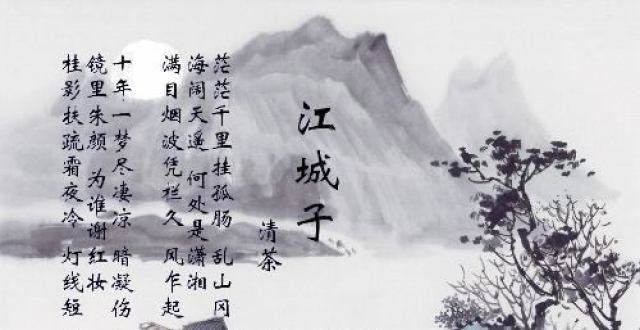 江城子
清茶
茫茫千里挂孤肠 乱山冈
海阔天遥 何处是潇湘
满目烟波凭栏久 风乍起
十年一梦尽凄凉 暗凝伤
镜里朱颜 为谁谢红妆
桂影扶疏霜夜冷 灯线短